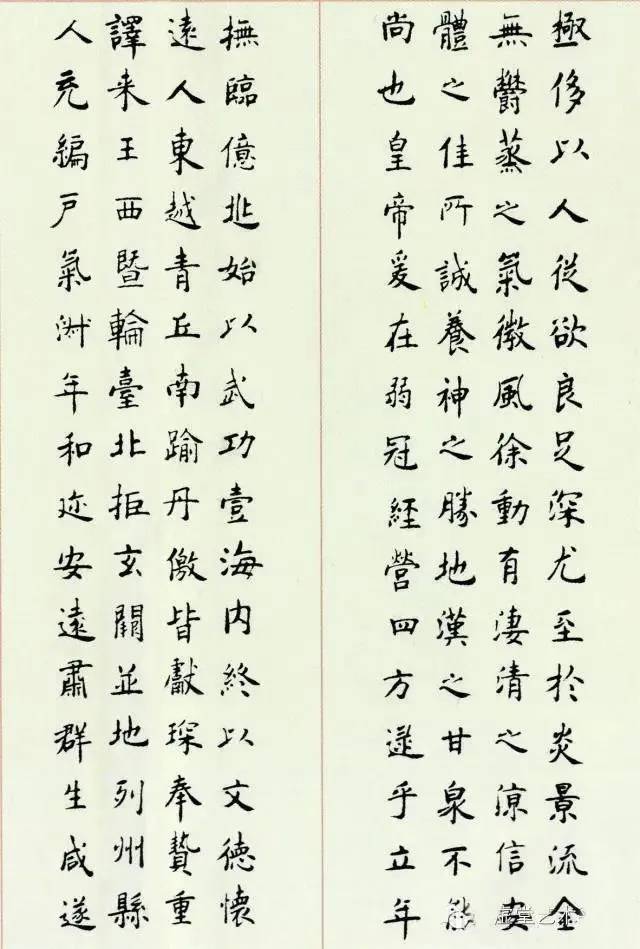 極侈以人従欲良足深尤至於炎景流金
無鬱蒸之氣微風徐動有淒清之涼信安
體之佳所誠養神之勝地漢之甘泉不能
尚也皇帝爰在弱冠經營四方逮乎立年
撫臨億兆始以武功壹海内終以文德懷
遠人東越青丘南踰丹儌皆獻琛奉贄重
譯来王西暨輪臺北拒玄闕並地列州縣
人充編戶氣淑年和迩安遠肅群生咸遂